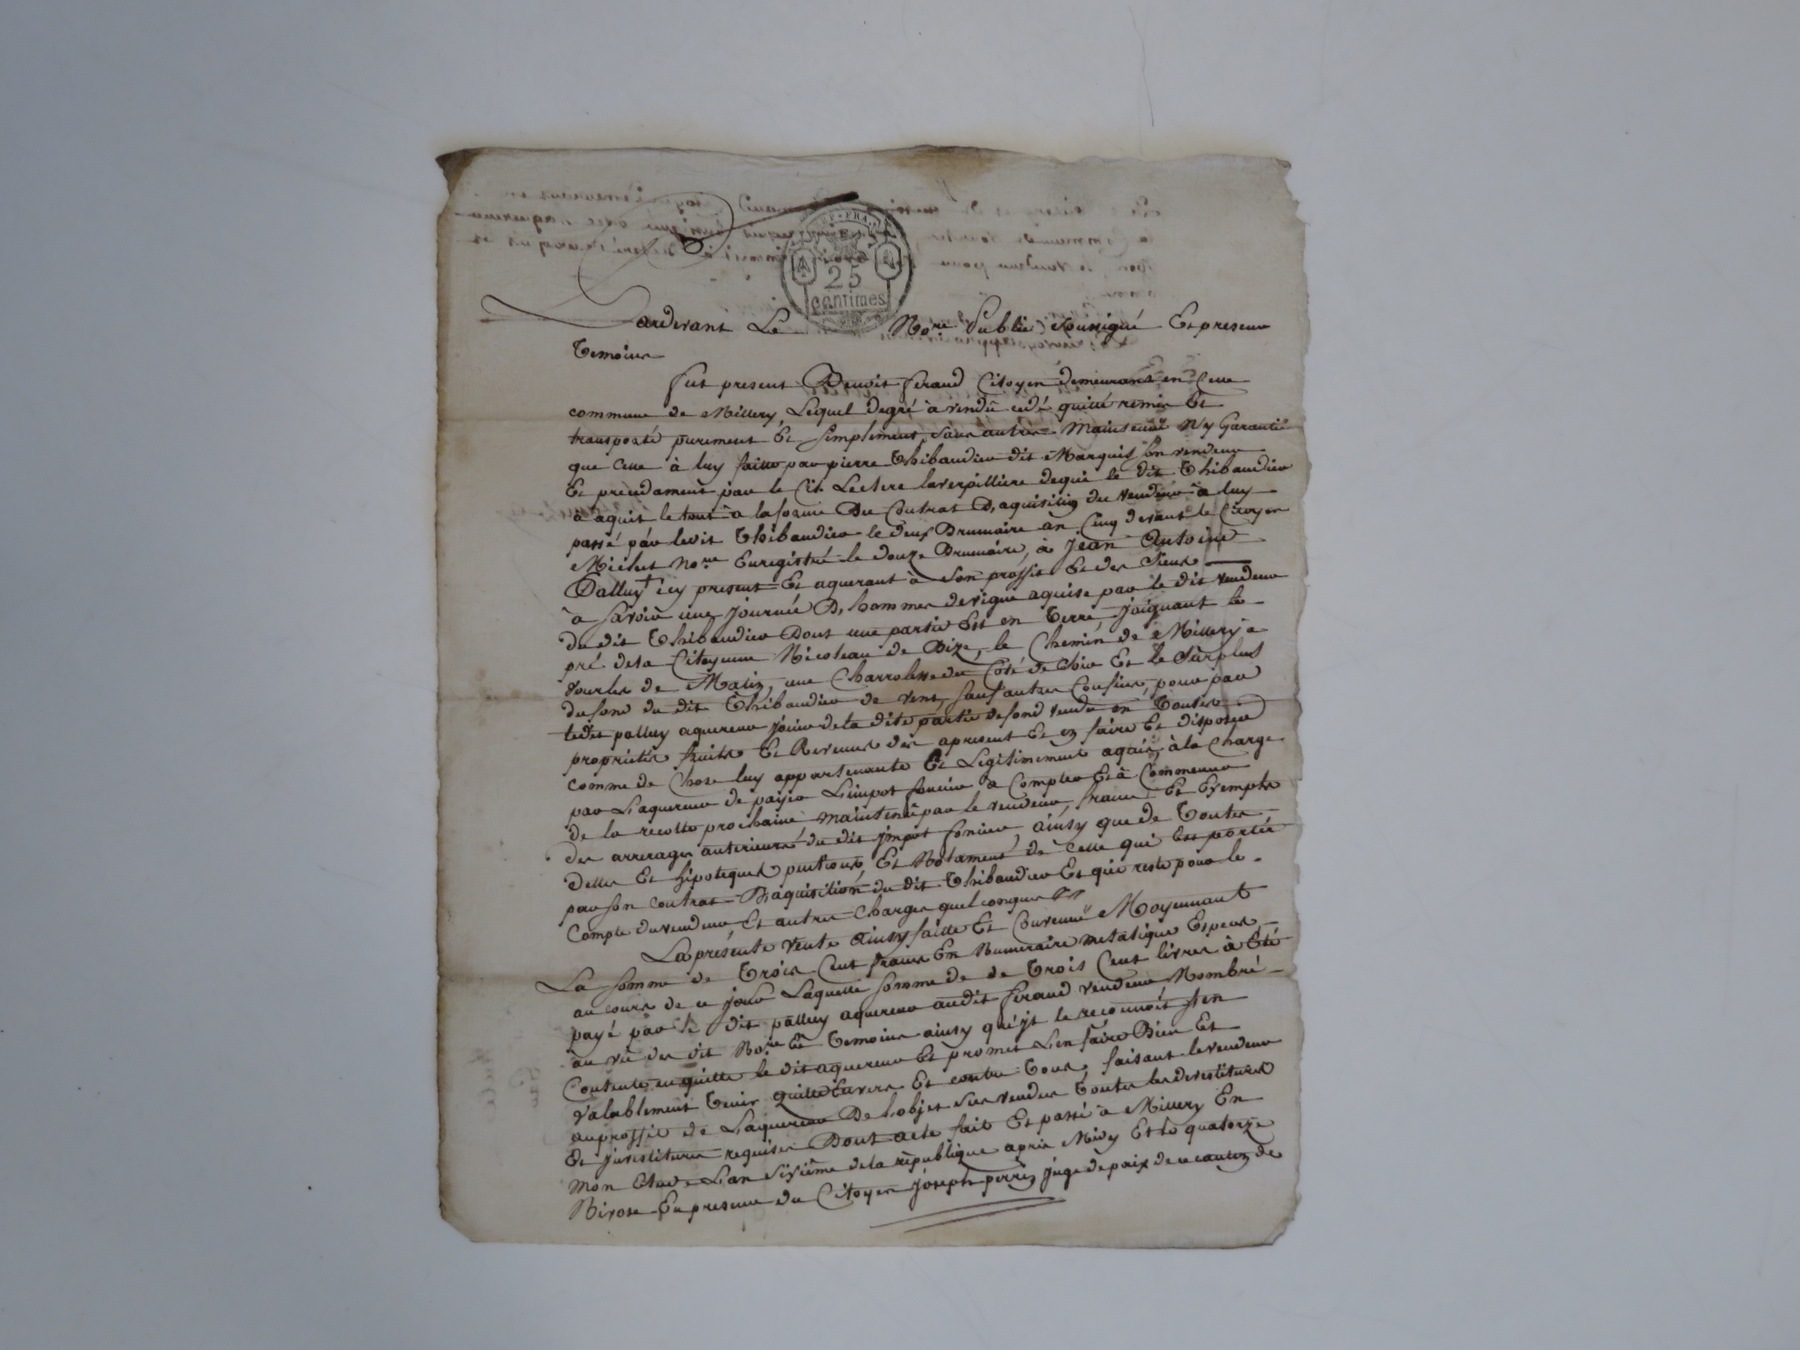 REP. FRA
25
centimes
Pardevant Le Nore Public Soussigné Et presence
Temoins
fut present Benoit feraud Citoyen demeurant en Cette
commune de Millery, Lequel degré à vendû cedé quitté remis Et
transporté purement Et simplement, sans autre Maintenüe Ny Garantie
que Celle à luy faitte par pierre Thibaudier dit Marquis son vendeur
Et precedament par le Cit. Leclere laverpilliere dequi le dit Thibaudier
à aquit le tout à la forme Du Contrat D'aquisition du vendeur à luy
passé par ledit Thibaudier le deux Brumaire an Cinq devant le Citoyen
Michet Nore Enregistré le douze Brumaire, à Jean Antoine
Palluy + icy present Et aquerant à son proffit Et des siens
à savoir une journée D'hommes de vigne aquise par le dit vendeur
du dit Thibaudier Dont une partie Est en Terre joignant le
pré de la Citoyenne Nicoleau de Bize, le Chemin de Millery à
vourles de Matin, une Charroliere du Coté de Bize Et le Surplus
du fond du dit Thibaudier de vent, sauf autres Confins, pour par
ledit palluy aquereur jouir de la dite partie de fond vendu en Toutes
proprietés fruits Et Revenus dès apresent Et en faire Et disposer
comme de Chose luy appartenante Et Legitimement aquise, à la Charge
par L'aquereur de payer L'impot foncier a Compter Et à Commencer
de la recolte prochaine maintenüe par le vendeur, franc Et Exempte
des arrerages anterieurs du dit jmpot foncier, ainsy que de Toutes
dettes Et hipoteques pentions, Et Notament de Celle qui Est portée
par son Contrat D'aquisition du dit Thibaudier Et qui reste pour le
Compte du vendeur, Et autres Charges quelconques
La présente vente ainsy faitte Et Convenüe Moyennant
La somme de Trois Cent francs En Numeraire metalique Especes
au cours de ce jour Laquelle somme de de Trois Cent livres à Eté
payé par le dit palluy aquereur audit feraud vendeur Nombré
au vû des dit Nore Et Temoins ainsy qu'jl le reconnoit s'en
Contente en quitte le dit aquereur Et promet L'en faire Bien Et
valablement Tenir quitte Envers Et contre Tous, faisant le vendeur
au proffit de L'aquereur De L'objet sus vendu Toutes les devestitures
Et jnvestitures requises Dont acte fait Et passé à Millery En
mon Etude L'an Sixième de la république après Midy Et le quatorze
Nivose En presence du Citoyen Joseph perrin juge de paix de ce canton de